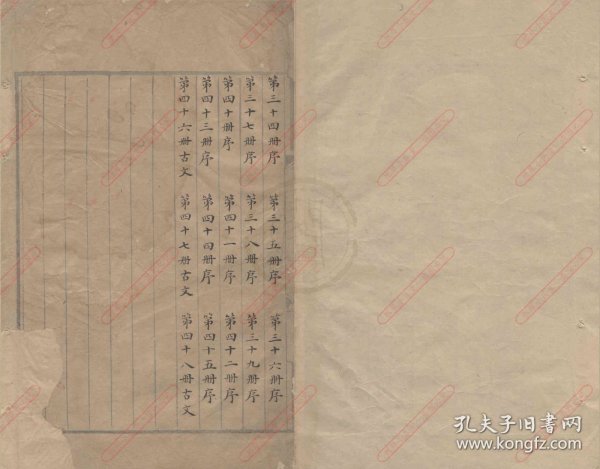 第三十四册序　第三十五册序　第三十六册序
第三十七册序　第三十八册序　第三十九册序
第四十册序　第四十一册序　第四十二册序
第四十三册序　第四十四册序　第四十五册序
第四十六册古文　第四十七册古文　第四十八册古文
孔夫子旧书网
www.kongfz.com